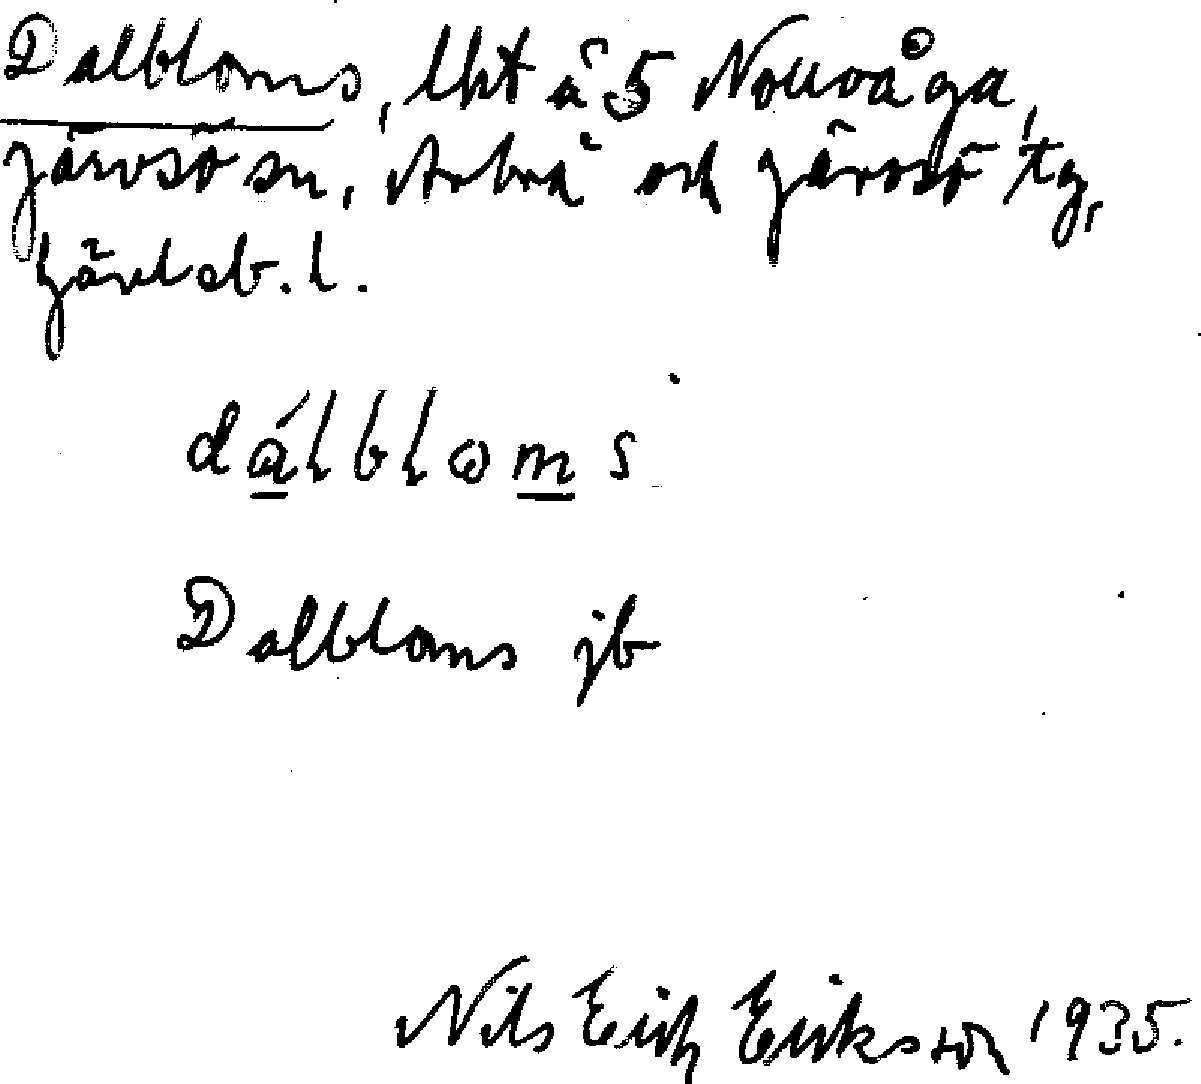 Dalbloms, lht å 5 Nouvåga,
Järvsö sn, Arbrå och Järvsö tg,
Gävleb. l.
dálbloms
Dalbloms jb
Nils Erich Erikson 1935.